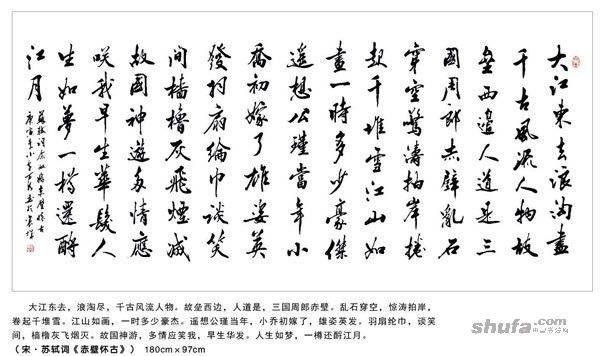 大江東去浪淘盡
千古風流人物故
壘西邊人道是三
國周郎赤壁亂石
穿空驚濤拍岸捲
起千堆雪江山如
畫一時多少豪傑
遥想公瑾當年小
喬初嫁了雄姿英
發羽扇綸巾談笑
間檣櫓灰飛煙滅
故國神遊多情應
咲我早生華髮人
生如夢一樽還酹
江月
蘇軾詞念奴嬌赤壁懷古
大江东去，浪淘尽，千古风流人物。故垒西边，人道是，三国周郎赤壁。乱石穿空，惊涛拍岸，
卷起千堆雪。江山如画，一时多少豪杰。遥想公瑾当年，小乔初嫁了，雄姿英发。羽扇纶巾，谈笑
间，樯橹灰飞烟灭。故国神游，多情应笑我，早生华发。人生如梦，一樽还酹江月。
（宋·苏轼词《赤壁怀古》） 180cm×97cm
shufa.com